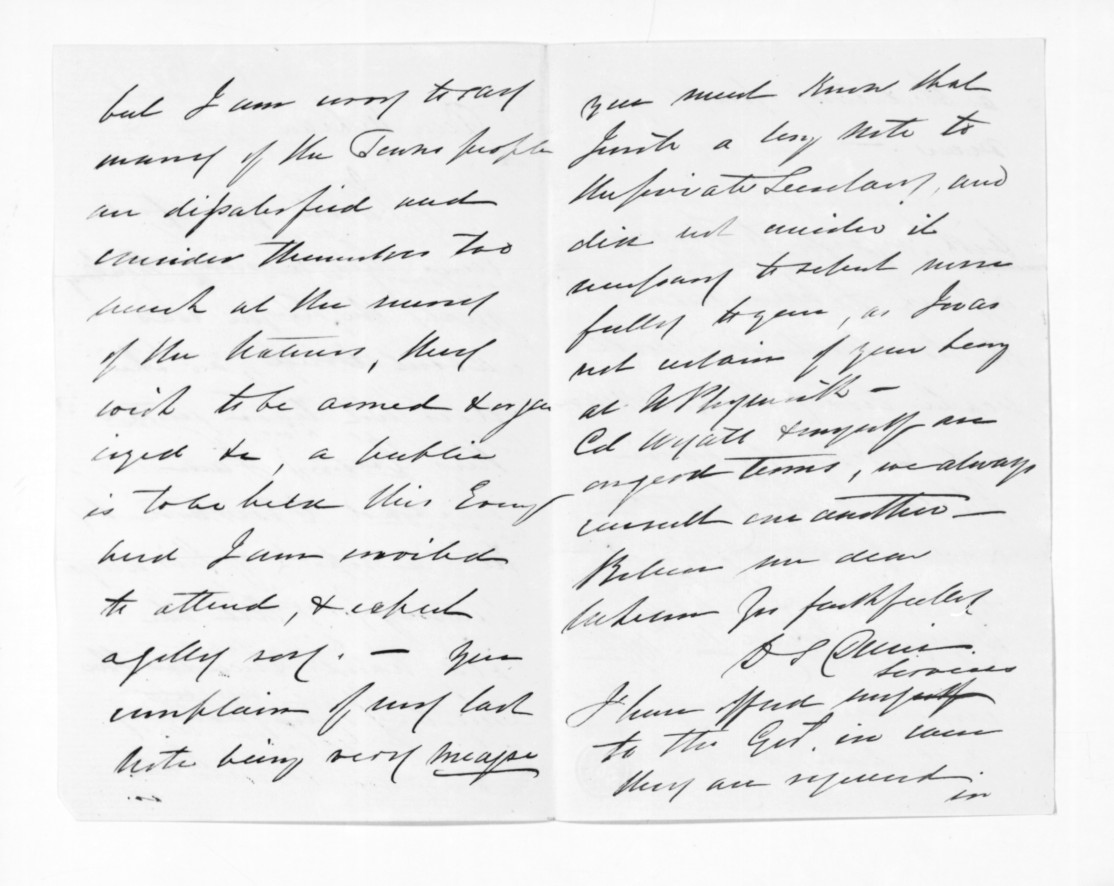 but I am sorry to say
many of the Towns people
are dissatisfied and
consider themselves too
much at the mercy
of the Natives, they
wish to be armed & organ
ized &c, a public
is to be held this Eveng
and I am invited
to attend, & expect
a jolly row. — You
complain of my last
Note being very meagre
you must know that
I wrote a long Note to
the private Secretary, and
did not consider it
necessary to submit more
fully to you, as I was
not certain of your being
at N Plymouth —
Col Wyatt & myself are
on good terms, we always
consult one another —
Believe me dear
McLean Yrs faithfully
D S
I have offered myself services
to the Govt. in case
they are required
in